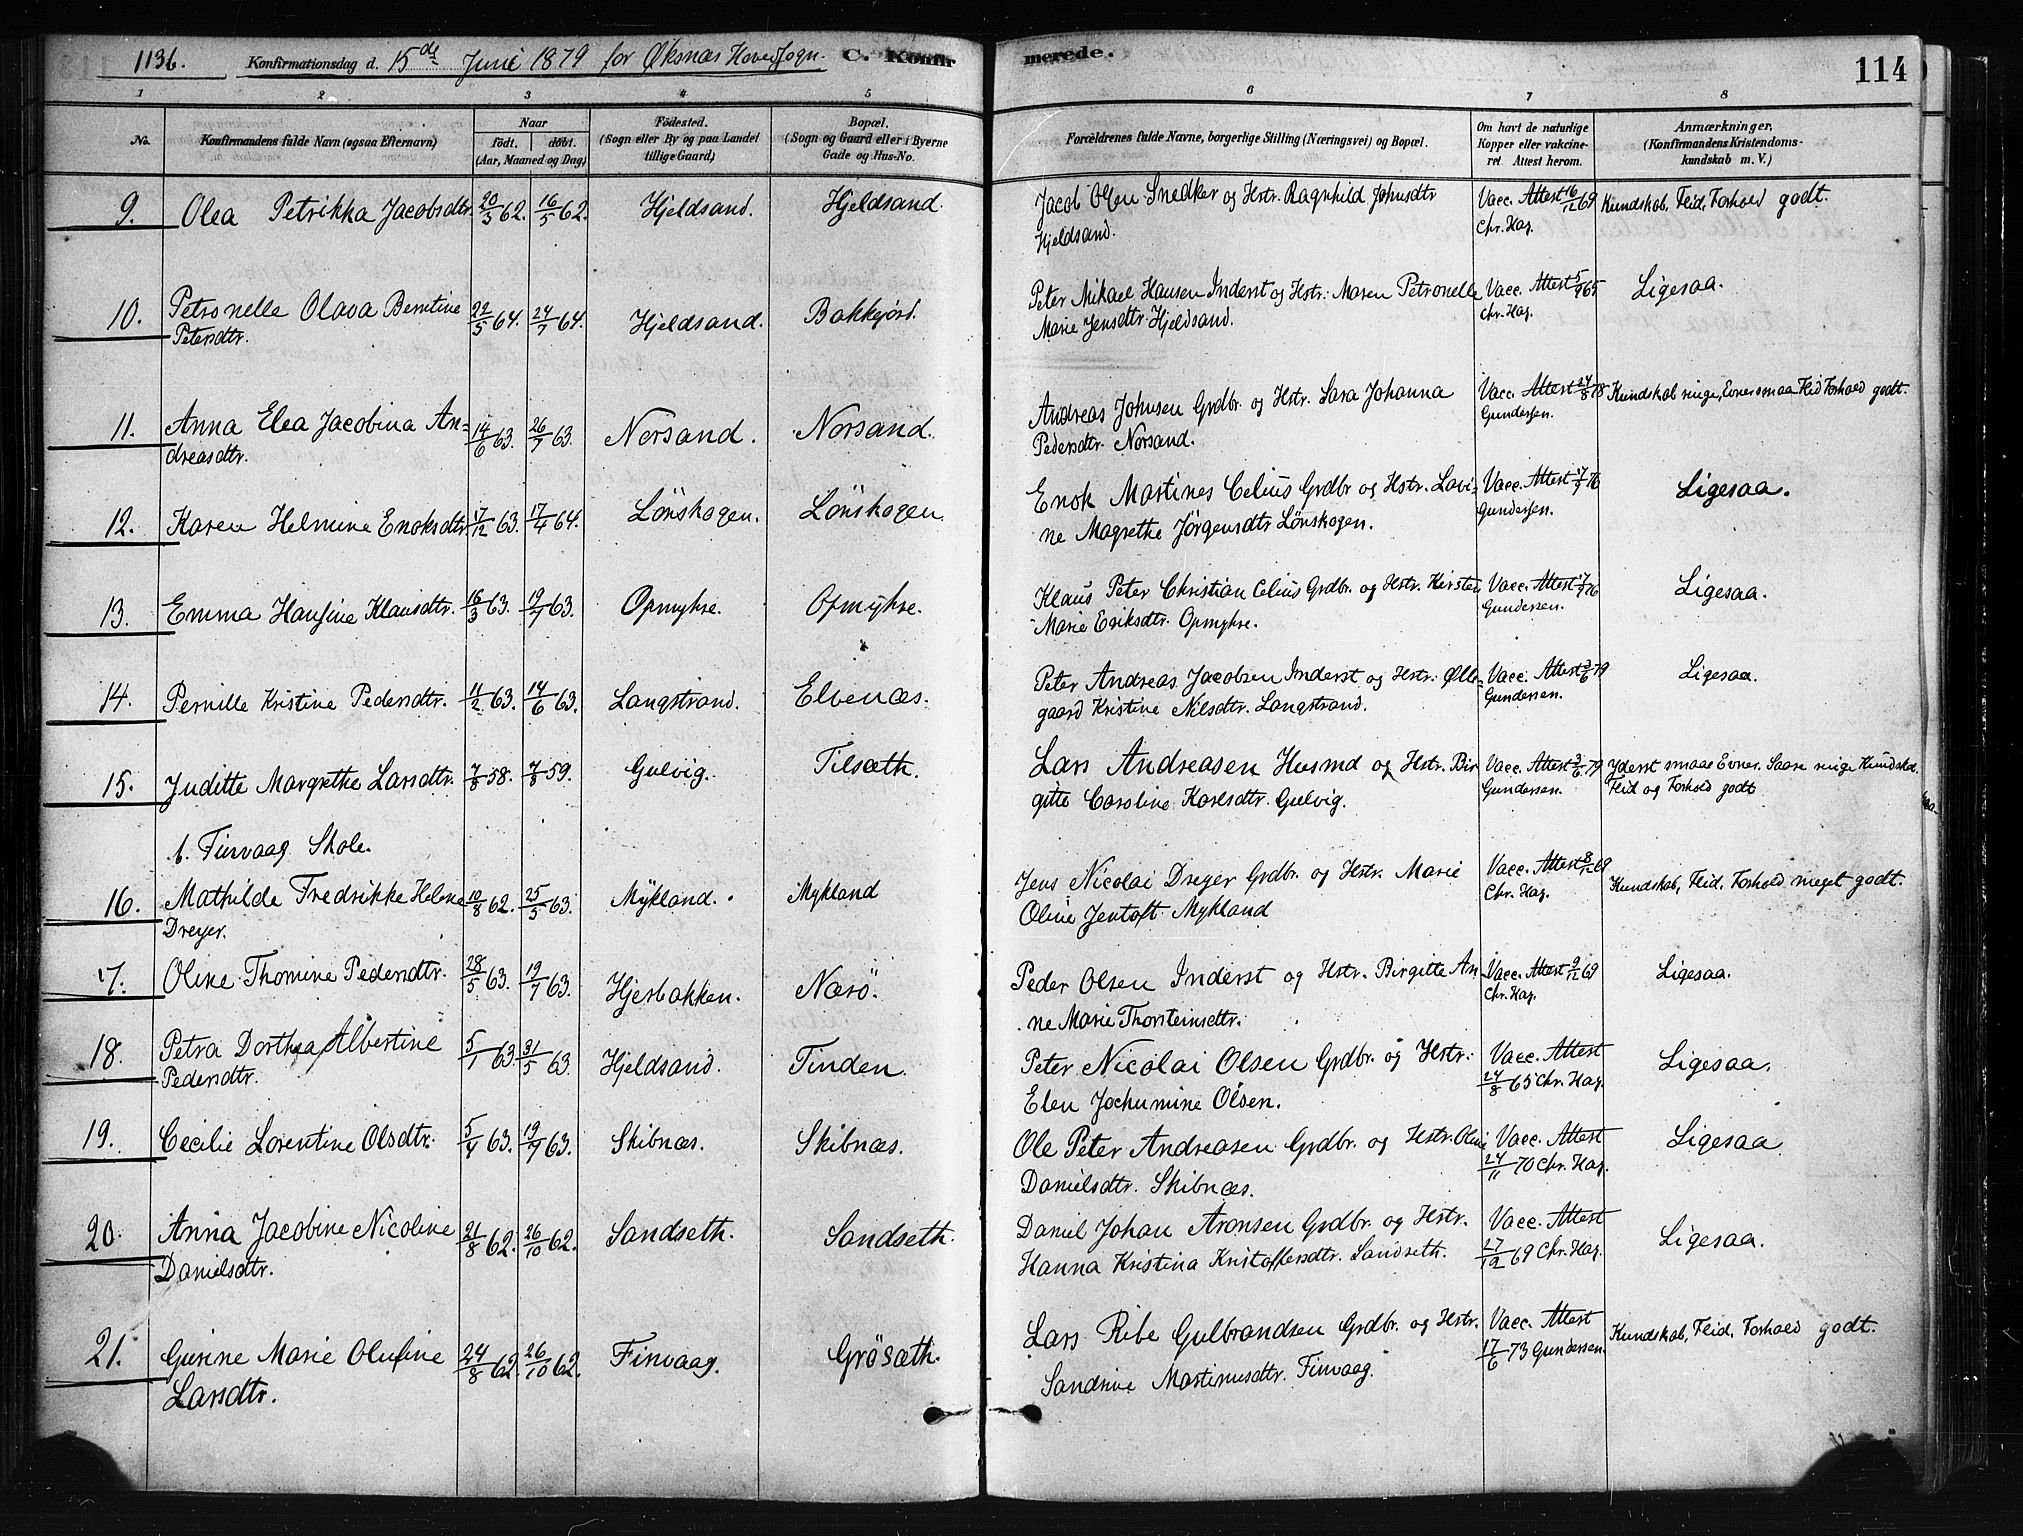 113b. Konfirmationsdag d. 15de Juni 1879 for Øksnæs Hovedsogn. C. Konfirmerede. 114
1 2 3 4 5 6 7 8
No. Konfirmandens fulde Navn (ogsaa Efternavn) Naar født. døbt. (Aar, Maaned og Dag) Fødested. (Sogn eller By og paa Landet tillige Gaard) Bopæl. (Sogn og Gaard eller i Byerne Gade og Hus-No. Forældrenes fulde Navne, borgerlige Stilling (Næringsvei) og Bopæl. Om havt de naturlige Kopper eller vakcineret Attest herom. Anmærkninger. (Konfirmandens Kristendomskundskab m. V.)
9. Olea Petrikka Jacobsdtr. 20/3 62. 16/5 62. Hjeldsand. Hjeldsand. Jacob Olsen Snedker og Hstr. Ragnhild Johnsdtr Vacc. Attest 16/12 69 Kundskab, Flid, Forhold godt.
Hjeldsand. Chr. Hag.
10. Petronelle Olava Berntine 22/5 64. 24/7 64. Hjeldsand. Bakkejord. Peter Mikael Hansen Inderst og Hstr. Maren Petronelle Vacc. Attest 5/9 65 Ligesaa.
Petersdtr. Marie Jensdtr. Hjeldsand. Chr. Hag.
11. Anna Elea Jacobina An- 14/6 63. 26/7 63. Norsand. Norsand. Andreas Johnsen Grdbr. og Hstr. Sara Johanna Vacc. Attest 24/8 78 Kundskab ringe, Evner smaa Flid Forhold godt.
dreasdtr. Pedersdtr. Norsand. Gundersen.
12. Karen Helmine Enoksdtr. 17/12 63. 17/4 64. Lönskogen. Lönskogen. Enok Martines Celius Grdbr og Hstr. Lavi- Vacc. Attest 17/7 76 Ligesaa.
ne Magrethe Jörgensdtr Lönskogen. Gundersen.
13. Emma Hansine Klausdtr. 16/3 63. 19/7 63. Opmyhre. Opmyhre. Klaus Peter Christian Celius Grdbr. og Hstr. Kirsten Vacc. Attest 17/7 76 Ligesaa.
Marie Eriksdtr. Opmyhre. Gundersen.
14. Pernille Kristine Pedersdtr. 11/2 63. 14/6 63. Langstrand. Elvenæs. Peter Andreas Jacobsen Inderst og Hstr. Olle- Vacc. Attest 3/6 79 Ligesaa.
gaard Kristine Nilsdtr. Langstrand. Gundersen.
15. Juditte Margrethe Larsdtr. 7/8 58. 7/8 59. Gulvig. Tilsæth. Lars Andreasen Husmd og Hstr. Bir Vacc. Attest 3/6 79 Yderst smaa Evner. Saare ringe Kundskab.
gitte Caroline Karlsdtr. Gulvig. Gundersen. Flid og Forhold godt
b. Finvaag Skole.
16. Mathilde Fredrikke Helene 10/8 62. 25/5 63. Mykland. Mykland Jens Nicolai Dreyer Grdbr. og Hstr. Marie Vacc. Attest 8/12 69 Kundskab, Flid, Forhold meget godt.
Dreyer. Oline Jentoft Mykland Chr. Hag.
17. Oline Thomine Pedersdtr. 28/5 63. 19/7 63. Hjerbakken. Nærö. Peder Olsen Inderst og Hstr. Birgitte An- Vacc. Attest 9/12 69 Ligesaa.
ne Marie Thorsteinsdtr. Chr. Hag.
18. Petra Dorthea Albertine 5/1 63 31/5 63. Hjeldsand. Tinden. Peter Nicolai Olsen Grdbr. og Hstr. Vacc. Attest Ligesaa.
Pedersdtr. Elen Jochumine Olsen. 24/8 65 Chr. Hag.
19. Cecilie Lorentine Olsdtr. 5/4 63. 19/7 63. Skibnæs. Skibnæs. Ole Peter Andreasen Grdbr. og Hstr. Oline Vacc. Attest Ligesaa
Danielsdtr. Skibnæs. 24/11 70 Chr. Hag.
20. Anna Jacobine Nicoline 21/8 62. 26/10 62. Sandseth. Sandseth. Daniel Johan Aronsen Grdbr. og Hstr. Vacc. Attest Ligesaa.
Danielsdtr. Hanna Kristina Kristoffersdtr. Sandseth. 27/12 69 Chr. Hag.
21. Gurine Marie Olufine 24/8 62. 26/10 62. Finvaag. Grösæth. Lars Ribe Gulbrandsen Grdbr. og Hstr. Vacc. Attest Kundskab, Flid, Forhold godt.
Larsdtr. Sandrine Martinusdtr. Finvaag. 17/6 73 Gundersen.